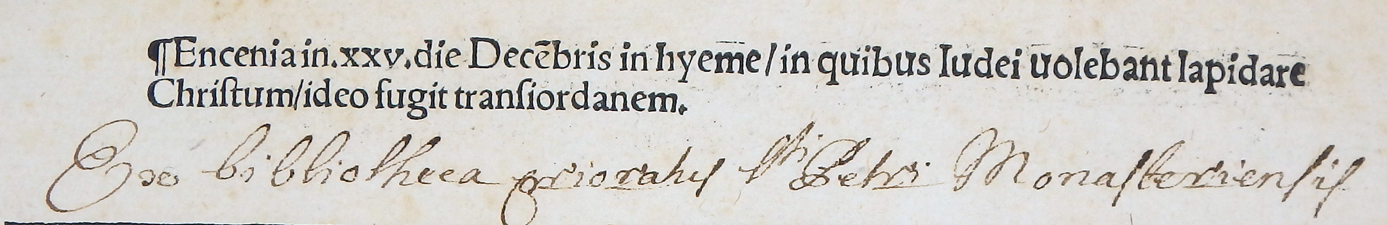 ¶Encenia in.xxv.die Decēbris in hyeme/in quibus Iudei uolebant lapidare
Chriſtum/ideo fugit tranſiordanem.
Ex bibliotheca prioratus Sti Petri Monasteriensis